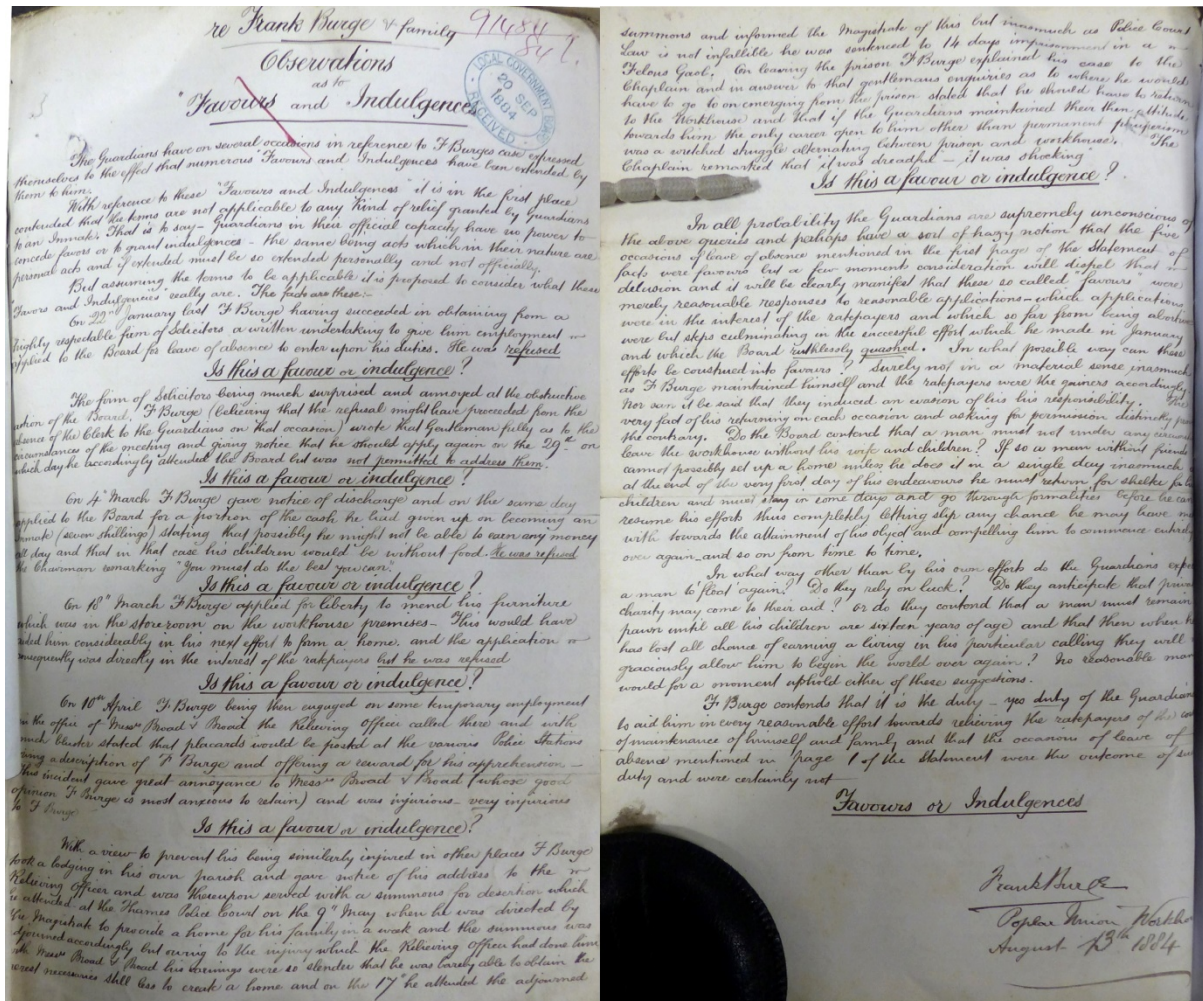 re Frank Burge & family
91484
84
LOCAL GOVERNMENT BOARD
20 SEP
1884
RECEIVED
Observations
as to
"Favours and Indulgences"
The Guardians have on several occasions in reference to F Burges case expressed
themselves to the effect that numerous "Favours and Indulgences" have been extended by
them to him.
With reference to these "Favours and Indulgences" it is in the first place
contended that the terms are not applicable to any kind of relief granted by Guardians
to an Inmate. That is to say – Guardians in their official capacity have no power to
concede favors or to grant indulgences – the same being acts which in their nature are
personal acts and if extended must be so extended personally and not officially.
But assuming the terms to be applicable it is proposed to consider what these
"Favors and Indulgences" really are. The facts are these:–
On 22nd January last F Burge having succeeded in obtaining from a
highly respectable firm of Solicitors a written undertaking to give him employment
applied to the Board for leave of absence to enter upon his duties. He was refused
Is this a favour or indulgence?
The firm of Solicitors being much surprised and annoyed at the obstructive
action of the Board, F Burge (believing that the refusal might have proceeded from the
absence of the Clerk to the Guardians on that occasion) wrote that Gentleman fully as to the
circumstances of the meeting and giving notice that he should apply again on the 29th on
which day he accordingly attended the Board but was not permitted to address them.
Is this a favour or indulgence?
On 4th March F Burge gave notice of discharge and on the same day
applied to the Board for a portion of the cash he had given up on becoming an
Inmate (seven shillings) stating that possibly he might not be able to earn any money
day and that in that case his children would be without food. He was refused
the Chairman remarking "You must do the best you can".
Is this a favour or indulgence?
On 18th March F Burge applied for liberty to mend his furniture
which was in the storeroom on the workhouse premises – This would have
aided him considerably in his next effort to form a home. and the application
consequently was directly in the interest of the ratepayers but he was refused
Is this a favour or indulgence?
On 10th April F Burge being then engaged on some temporary employment
in the office of Messrs Broad & Broad the Relieving Officer called there and with
much bluster stated that placards would be posted at the various Police Stations
giving a description of F Burge and offering a reward for his apprehension –
This incident gave great annoyance to Messrs Broad & Broad (whose good
opinion F Burge is most anxious to retain) and was injurious – very injurious
to F Burge
Is this a favour or indulgence?
With a view to prevent his being similarly injured in other places F Burge
took a lodging in his own parish and gave notice of his address to the
Relieving Officer and was thereupon served with a summons for desertion which
he attended at the Thames Police Court on the 9th May when he was directed by
the Magistrate to provide a home for his family in a week and the summons was
adjourned accordingly but owing to the injury which the Relieving Officer had done him
with Messrs Broad & Broad his earnings were so slender that he was barely able to obtain the
merest necessaries still less to create a home and on the 17th he attended the adjourned
summons and informed the Magistrate of this but inasmuch as Police Court
Law is not infallible he was sentenced to 14 days imprisonment in a
Felons Gaol. On leaving the prison F Burge explained his case to the
Chaplain and in answer to that gentlemans enquiries as to where he would
have to go to on emerging from the prison stated that he should have to return
to the Workhouse and that if the Guardians maintained their then attitude
towards him the only career open to him other than permanent pauperism
was a wretched struggle alternating between prison and workhouse. The
Chaplain remarked that "it was dreadful – it was shocking
Is this a favour or indulgence?
In all probability the Guardians are supremely unconscious of
the above queries and perhaps have a sort of hazy notion that the five
occasions of leave of absence mentioned in the first page of the Statement of
facts were favours but a few moments consideration will dispel that
delusion and it will be clearly manifest that these so called "favours" were
merely reasonable responses to reasonable applications – which applications
were in the interest of the ratepayers and which so far from being abortive
were but steps culminating in the successful effort which he made in January
and which the Board ruthlessly quashed. In what possible way can these
efforts be construed into favours? Surely not in a material sense inasmuch
as F Burge maintained himself and the ratepayers were the gainers accordingly
Nor can it be said that they induced an evasion of his responsibility. The
very fact of his returning on each occasion and asking for permission distinctly
the contrary. Do the Board contend that a man must not under any
leave the workhouse without his wife and children? If so a man without friends
cannot possibly set up a home unless he does it in a single day inasmuch
at the end of the very first day of his endeavours he must return for shelter for
children and must stay in some days and go through formalities before he can
resume his efforts thus completely letting slip any chance he may have
with towards the attainment of his object and compelling him to commence entirely
over again – and so on from time to time.
In what way other than by his own efforts do the Guardians expect
a man to 'float' again? Do they rely on luck? Do they anticipate that private
charity may come to their aid? or do they contend that a man must remain
pawn until all his children are sixteen years of age and that then when he
has lost all chance of earning a living in his particular calling they will
graciously allow him to begin the world over again? No reasonable man
would for a moment uphold either of these suggestions.
F Burge contends that it is the duty – yes duty of the Guardians
to aid him in every reasonable effort towards relieving the ratepayers of the
of maintenance of himself and family and that the occasions of leave of
absence mentioned in page 1 of the Statement were the outcome of such
duty and were certainly not
Favours or Indulgences
Frank Burge
Poplar Union Workhouse
August 13th 1884